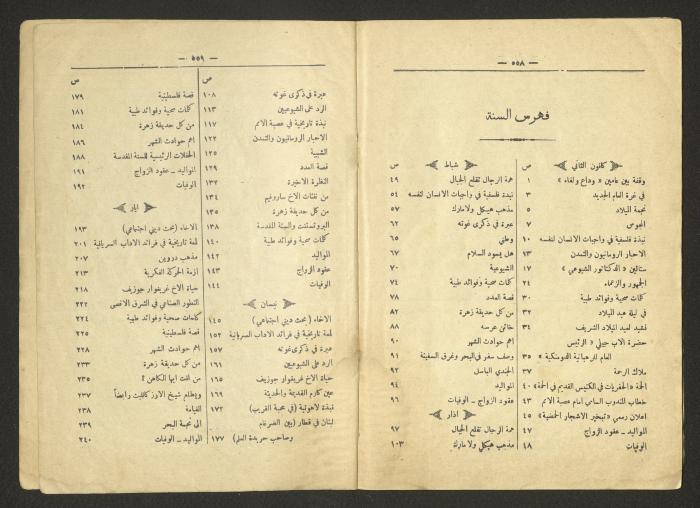 — ٥٥٨ —
فهرس السنة
كانون الثاني ص
وقفة بين عامين «وداع ولقاء» ١
في غرة العام الجديد ٣
نجمة الميلاد ٥
المجوس ٧
نبذة فلسفية في واجبات الانسان لنفسه ١٠
الاحبار الرومانيون والتمدن ١٣
ستالين «الدكتاتور الشيوعي» ١٧
الجمهور والزعماء ٢٤
كلمات صحية وفوائد طبية ٣٠
في ليلة عيد الميلاد ٣٢
نشيد لعيد الميلاد الشريف ٣٤
حضرة الاب جيلي «الرئيس
العام للرهبانية الدومنكية» ٣٥
ملاك الرحمة ٣٧
لمحة «الحفريات في الكنيس القديم في الحمة» ٤٠
خطاب المندوب السامي امام عصبة الامم ٤٣
اعلان رسمي «تبخير الاشجار الحمضية» ٤٥
المواليد - عقود الزواج ٤٧
الوفيات ٤٨
شباط ص
همة الرجال تقلع الجبال ٤٩
نبذة فلسفية في واجبات الانسان لنفسه ٥٤
مذهب هيكل ولامارك ٥٧
عبرة في ذكرى غوته ٦٢
وطني ٦٥
هل يسود السلام ٦٧
الشيوعية ٧٠
كلمات صحية وفوائد طبية ٧٤
قصة العدد ٧٨
من كل حديقة زهرة ٨٢
خاتن عرسه ٨٨
اهم حوادث الشهر ٩٠
وصف سفر في البحر وغرق السفينة ٩١
الجندي الباسل ٩٢
المواليد ٩٤
عقود الزواج - الوفيات ٩٦
اذار
همة الرجال تقلع الجبال ٩٧
مذهب هيكل ولامارك ١٠٣
— ٥٥٩ —
ص
عبرة في ذكرى غوته ١٠٨
الرد على الشيوعيين ١١٣
نبذة تاريخية في عصبة الامم ١١٧
الاحبار الرومانيون والتمدن ١٢٢
الشبيبة ١٢٥
قصة العدد ١٢٩
النظرة الاخيرة ١٣٢
من نفثات الاخ ساروفيم ١٣٤
من كل حديقة زهرة ١٣٥
البروتستنت والسنة المقدسة ١٣٨
كلمات صحية وفوائد طبية ١٤٠
المواليد ١٤٢
عقود الزواج ١٤٣
الوفيات ١٤٤
نيسان
الاخاء (بحث ديني اجتماعي) ١٤٥
لمحة تاريخية في فرائد الاداب السريانية ١٥٢
عبرة في ذكرى غوته ١٥٧
الرد على الشيوعيين ١٦١
حياة الاخ غريفوار جوزيف ١٦٥
عين كارم القديمة والحديثة ١٦٩
نبذة لاهوتية (في محبة القريب) ١٧٢
لبنان في قطار (بين الضرغام
وصاحب جريدة العلم) ١٧٧
ص
قصة فلسطينية ١٧٩
كلمات صحية وفوائد طبية ١٨١
من كل حديقة زهرة ١٨٤
اهم حوادث الشهر ١٨٦
الحفلات الرئيسية للسنة المقدسة ١٨٨
المواليد - عقود الزواج ١٩١
الوفيات ١٩٢
ايار
الاخاء (بحث ديني اجتماعي) ١٩٣
لمحة تاريخية في فرائد الاداب السريانية ٢٠١
مذهب دروين ٢٠٧
ازمة الحركة الفكرية ٢١٣
حياة الاخ غريفوار جوزيف ٢١٨
التطور الصناعي في الشرق الاقصى ٢٢٢
كلمات صحية وفوائد طبية ٢٢٤
قصة فلسطينية ٢٢٥
اهم حوادث الشهر ٢٢٨
من كل حديقة زهرة ٢٣٣
من انت ايها الكاهن؟ ٢٣٥
ويظلم شيخ الاوركاليت رابضاً ٢٣٧
القيامة ٢٣٨
الى نجمة البحر ٢٣٩
المواليد - الوفيات ٢٤٠